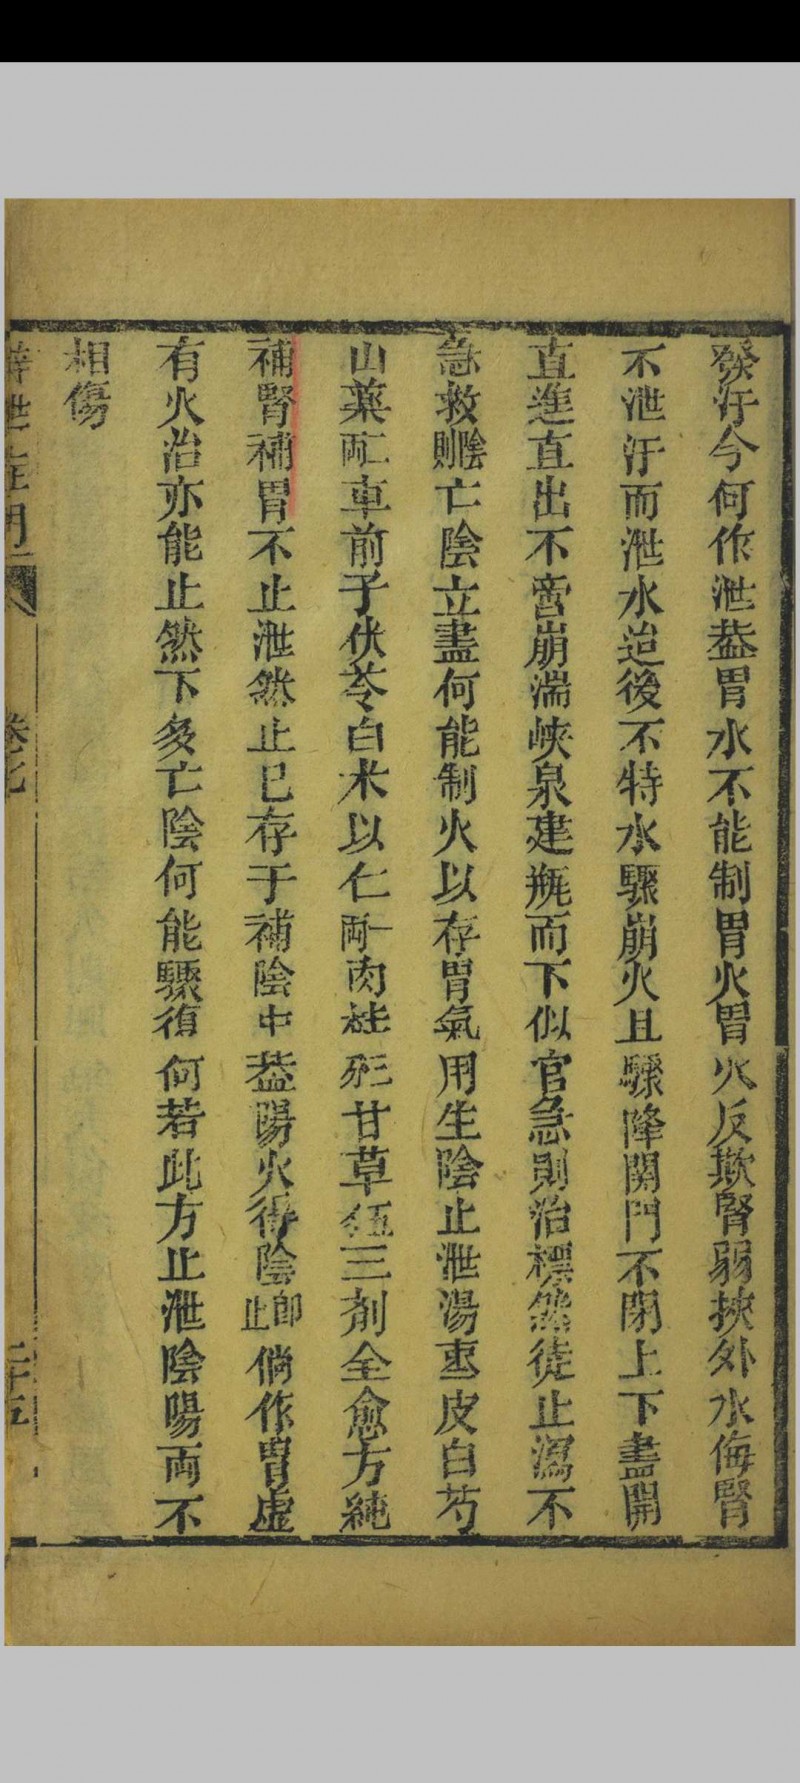 發汗今何作泄葢胃水不能制胃火胃火反欺腎弱挾外水侮腎
不泄汗而泄水迨後不特水驟崩火且驟降関門不閉上下盡開
直進直出不啻崩湍峽泉建瓶而下似官急則治標然徒止瀉不
急救陰則亡陰立盡何能制火以存胃氣用生陰止泄湯
皮白芍
山藥二両車前子伏苓白术以仁一両肉桂三分甘草五三剤全愈方純
補腎補胃不止泄然止已存于補陰中葢陽火得陰即止倘作胃虚
有火治亦能止然下多亡陰何能驟復何若此方止泄陰陽両不
相傷
卷七
二十五